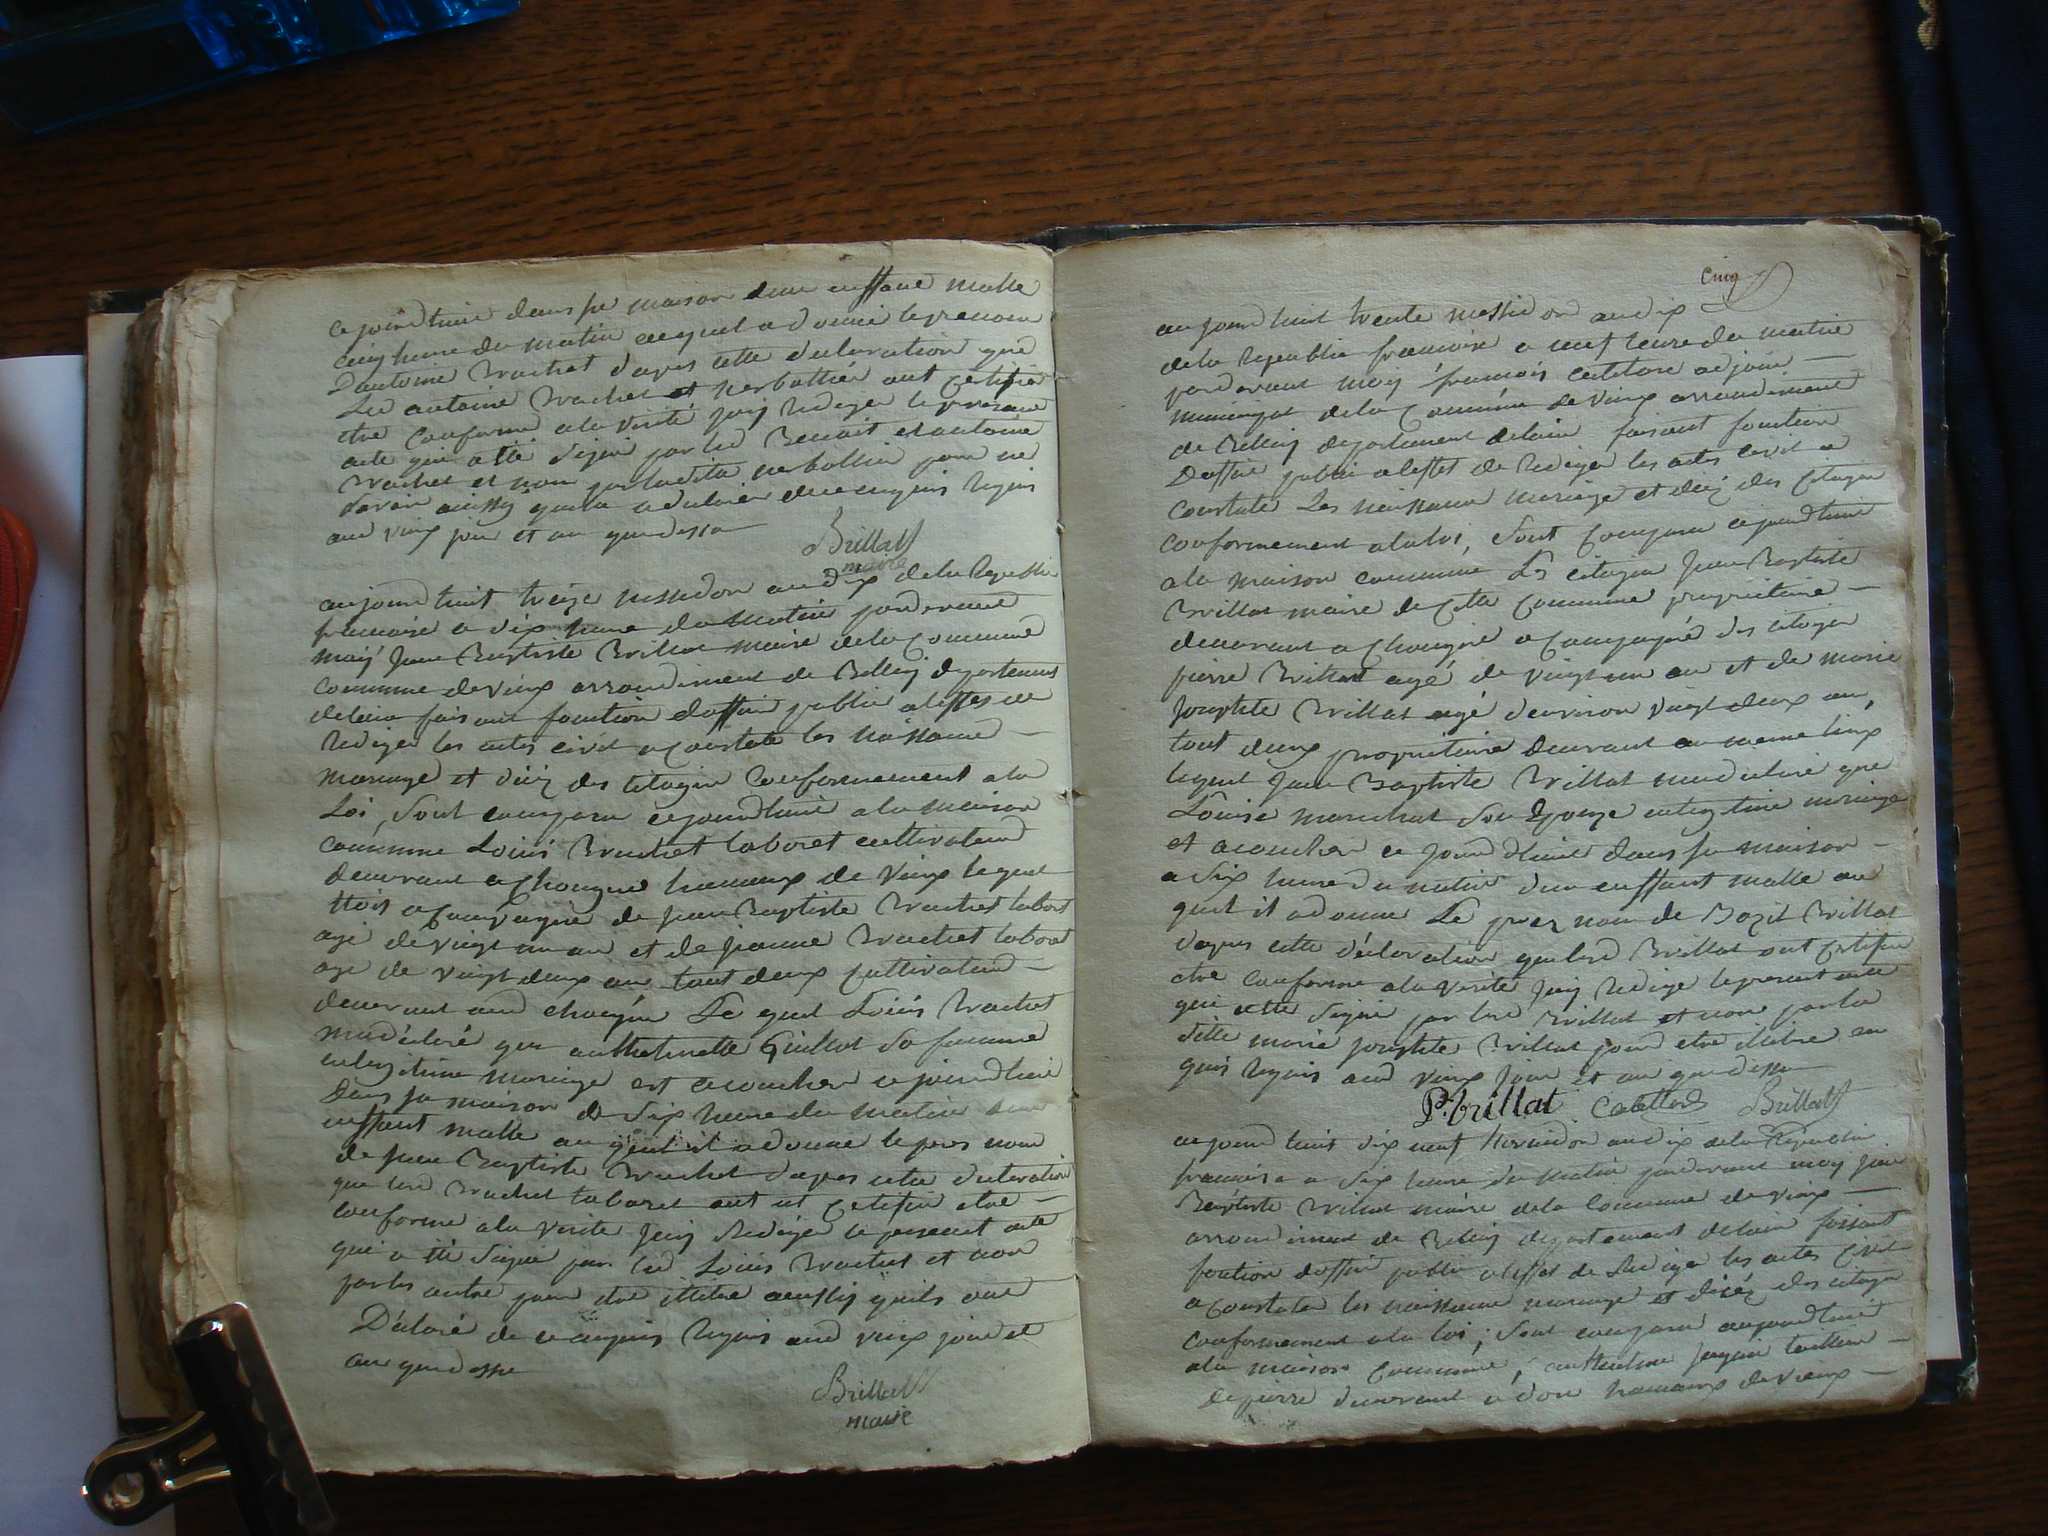 ce jourd'huie dans sa maison d'un enffant malle
cinq heure du matin auquel a donné le prenom
D'antoine Brachet d'apres cette declaration que
Les antoine Brachet et nerbollier ont certifié
etre conforme a la vérité j'aij redigee le presant
acte qui a été signé par led Benoit et antoine
Brachet et non par ladita nerbollier pour ne
savoir ainssy quela adclaré de ce enquis requis
aud vieux jour et an que dessu
Brillat
maire
aujourd'huit treize messidor an dix dela Republi
francaise a dix heure du matin pardevant
moij Jean Baptiste Brillat maire dela Commune
commune de vieux arrondiment de Belleij departement
delain faisant fonction doffice publie a leffes de
rediger les actes civil a Constaté les naissance
mariage et décéz des citoyin Conformement a la
Loi, sont comparu cejourd'huie a la maison
commune Louis Brachet laboret cultivateur
demurant a Chongne hameaux de vieux lequel
étois a Compagnié de Jean Baptiste Brachet laboret
agé de vingt un an et de jeanne Brachet laboret
age de vingt deux an tout deux cultivateur
demurant aud chongne Le quel Louis Brachet
ma déclaré que anthelmette Guillot sa famme
enlegitime mariage est acoucher ce jourd'huie
Dans sa maison a six heure du matin dun
enffant malle au quel il adonné le pres nom
de Jean Baptiste Brachet d'apres cette declaration
que led Brachet laboret ont certifier etre
conforme a la vérité Jaij redigé le present acte
qui a été signé par led Louis Brachet et non
par les autre pour etre illitré ainssij quils ont
Déclaré de ce enquis requis aud vieux jour et
an que dessu
Brillat
maire
cinq
aujourd'huit trente messidor an dix
dela Republie francaise a neuf heure du matin
pardevant moij francois Catteland adjoin
municipal dela Commune de vieux arrondiment
de Belleij departement delain faisant fonction
Doffice publi a leffet de rediger les actes civil a
Constaté Les naissance mariage et décéz des Citoyen
conformement a la loi, sont comparu cejourd'huie
a la maison commune Le citoyin Jean Baptiste
Brillat maire de Cette Commune propriétaire
demurant a Chongne a Compagné des citoyin
pierre Brillat agé de vingt un an et de marie
Josephte Brillat agé d'environ vingt deux an,
tout deux propriétaire demurant au meme lieux
lequel Jean Baptiste Brillat ma declaré que
Louise marechat son Epouze enlegitime mariage
et acoucher ce jourd'huie dans sa maison
a six heure du matin d'un enffant malle au
quel il adonné Le prez nom de Bazil Brillat
dapres cette déclaration que led Brillat ont certifier
etre conforme a la verite Jaij redigé le present acte
qui a etté signé par led Brillat et non par la
ditte marie josephte Brillat pour etre illitré en
quis requis aud vieux Jour et an que dessu
P. Brillat Catelland Brillat
aujourd'huit dix neuf thermidor an dix dela Republie
francaise a dix heure du matin pardevant moij Jean
Baptiste Brillat maire dela Commune de vieux
arrondiment de Belleij departement delain faissant
fonction doffice publi a leffet de Rediger les actes civil
a Constaté les naissance mariage et décéz des citoyin
conformement a la loi; sont comparu aujourd'huie
a la maison Commune, anthelme
de pierre demurant a don hameaux de vieux